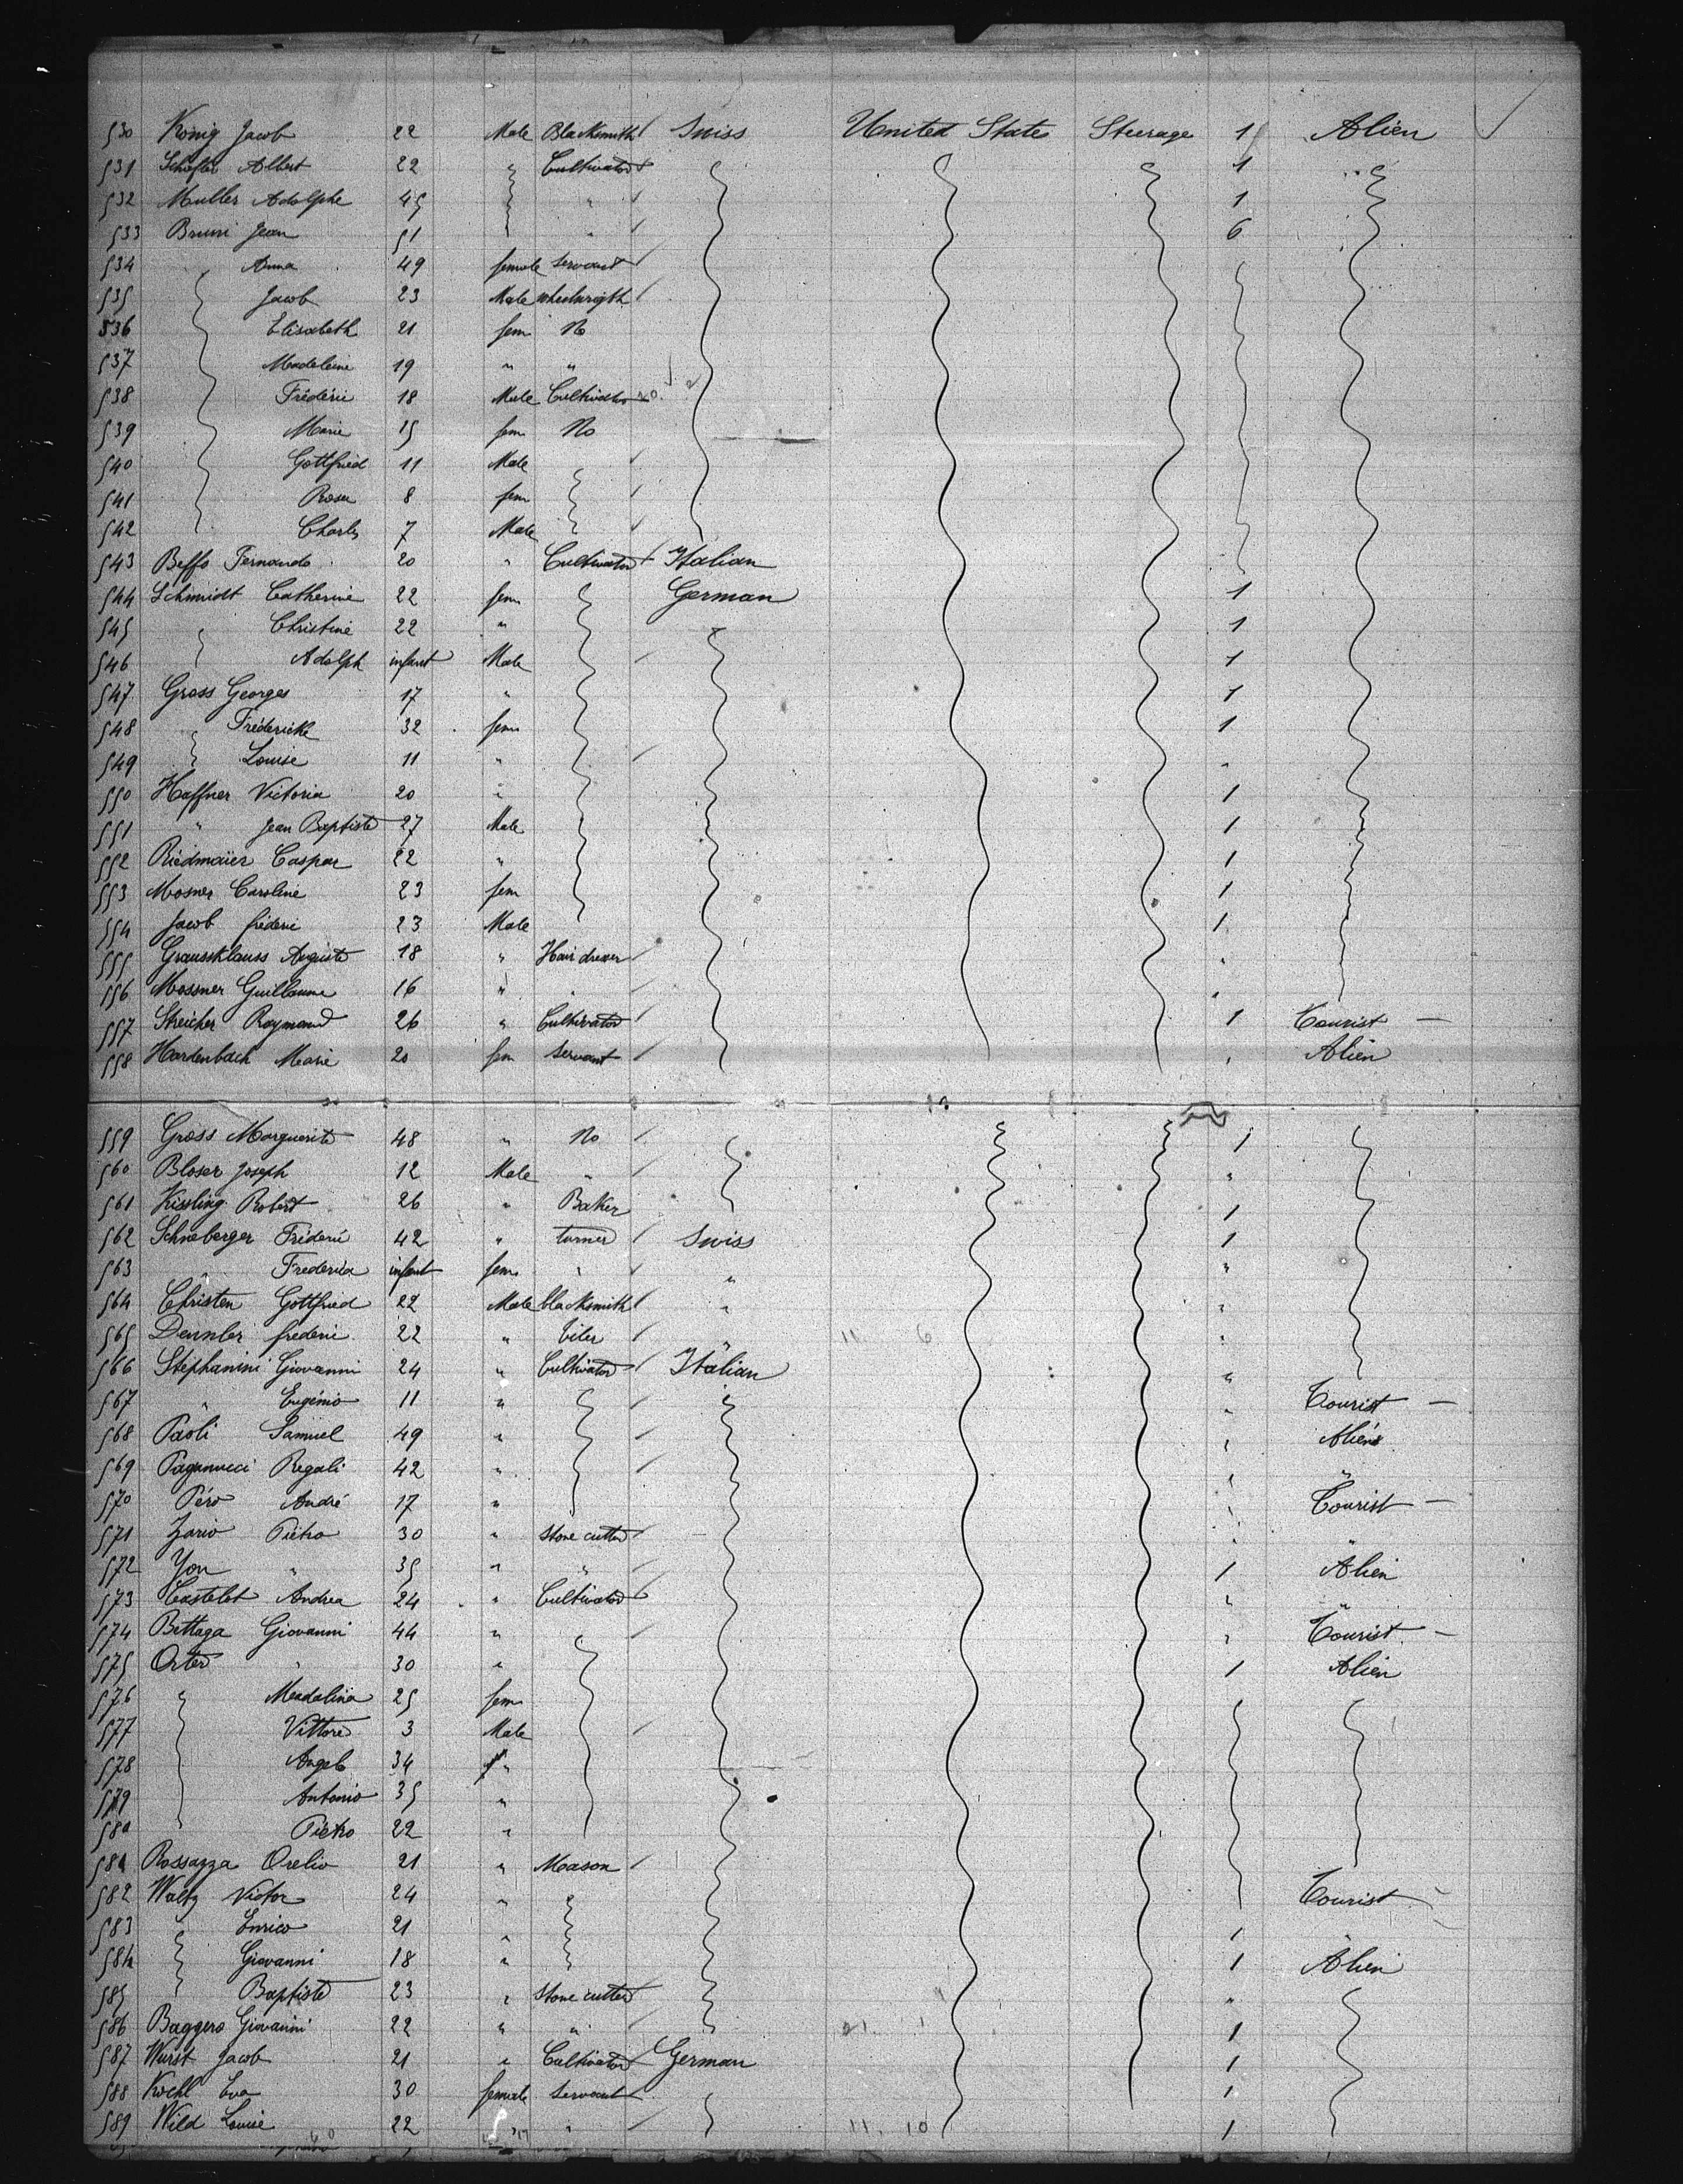 530 König Jacob 22 Male Blacksmith Swiss United States Steerage 1 Alien
531 Schäfler Albert 22 " Cultivator 1
532 Muller Adolphe 45 " 1
533 Brunni Jean 51 " 6
534 Anna 49 female servant
535 Jacob 23 Male wheelwrigth
536 Elisabeth 21 fem No
537 Madeleine 19 " "
538 Fréderic 18 Male Cultivator 20. 2
539 Marie 15 fem No
540 Gottfried 11 Male
541 Rosa 8 fem
542 Charles 7 Male
543 Beffo Fernando 20 " Cultivator Italian
544 Schmidt Catherine 22 fem German 1
545 Christine 22 " 1
546 Adolph infant Male 1
547 Gross Georges 17 " 1
548 Fréderické 32 fem 1
549 Louise 11 " "
550 Haffner Victoria 20 " 1
551 " Jean Baptiste 27 Male 1
552 Riedmaïer Caspar 22 " 1
553 Mosner Caroline 23 fem 1
554 Jacob fréderic 23 Male 1
555 Graussklauss Auguste 18 " Hair dresser "
556 Mossner Guillaume 16 " " "
557 Streicher Raymond 26 " Cultivator 1 Tourist —
558 Hardenbach Marie 20 fem servant " Alien
559 Gross Marguerite 48 " No 1
560 Bloser Joseph 12 Male " "
561 Kissling Robert 26 " Baker 1
562 Schneberger Fréderic 42 " turner Swiss 1
563 " Frederica infant fem " " "
564 Christen Gottfried 22 Male blacksmith " "
565 Dennler frederic 22 " tiler " 11 6 "
566 Stephanini Giovanni 24 " Cultivator Italian "
567 " Eugénio 11 " " Tourist —
568 Paoli Samuel 49 " " Alien
569 Paganucci Regali 42 " " "
570 Péro André 17 " " Tourist —
571 Zario Pietro 30 " stone cutter " "
572 Yon " 35 " " 1 Alien
573 Castelet Andrea 24 " Cultivator " "
574 Bettaga Giovanni 44 " " Tourist —
575 Orter " 30 " 1 Alien
576 Madalina 25 fem
577 Vittore 3 Male
578 Angelo 34 "
579 Antonio 35 "
580 Piétro 22 "
581 Rossazza Orelio 21 " Mason
582 Waltz Victor 24 " Tourist —
583 Enrico 21 " 1 "
584 Giovanni 18 " 1 Alien
585 Baptiste 23 " stone cutter "
586 Baggero Giovanni 22 " " 21 1 1
587 Wurst Jacob 21 " Cultivator German 1
588 Kochl Eva 30 female servant 1
589 Wild Louise 22 " " 11. 10 1